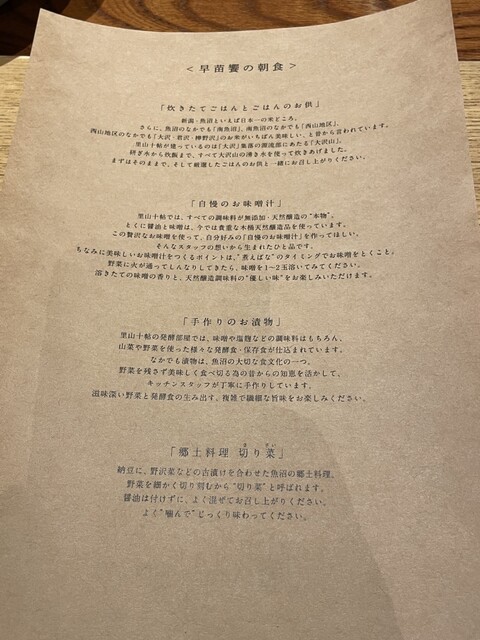 ＜早苗饗の朝食＞
「炊きたてごはんとごはんのお供」
新潟・魚沼といえば日本一の米どころ。
さらに、魚沼のなかでも「南魚沼」、南魚沼のなかでも「西山地区」、
西山地区のなかでも「大沢・君沢・樺野沢」のお米がいちばん美味しい、と昔から言われています。
里山十帖が建っているのは「大沢」集落の源流部にあたる「大沢山」。
研ぎ水から炊飯まで、すべて大沢山の湧き水を使って炊きあげました。
まずはそのままで、そして厳選したごはんのお供と一緒にお召し上がりください。
「自慢のお味噌汁」
里山十帖では、すべての調味料が無添加・天然醸造の"本物"。
とくに醤油と味噌は、今では貴重な木桶天然醸造品を使っています。
この贅沢なお味噌を使って、自分好みの「自慢のお味噌汁」を作ってほしい。
そんなスタッフの想いから生まれたひと品です。
ちなみに美味しいお味噌汁をつくるポイントは、"煮えばな"のタイミングでお味噌をとくこと。
野菜に火が通ってしんなりしてきたら、味噌を1〜2玉溶いてみてください。
溶きたての味噌の香りと、天然醸造調味料の"優しい味"をお楽しみいただけます。
「手作りのお漬物」
里山十帖の発酵部屋では、味噌や塩麹などの調味料はもちろん、
山菜や野菜を使った様々な発酵食・保存食が仕込まれています。
なかでも漬物は、魚沼の大切な食文化の一つ。
野菜を残さず美味しく食べ切る為の昔からの知恵を活かして、
キッチンスタッフが丁寧に手作りしています。
滋味深い野菜と発酵食の生み出す、複雑で繊細な旨味をお楽しみください。
「郷土料理 切り菜」
納豆に、野沢菜などの古漬けを合わせた魚沼の郷土料理。
野菜を細かく切り刻むから"切り菜"と呼ばれます。
醤油は付けずに、よく混ぜてお召し上がりください。
よく"噛んで"じっくり味わってください。